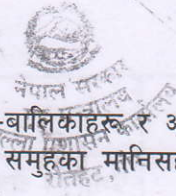 नेपाल सरकार
-बालिकाहरू र अ
समुहका मानिसह
रौतहट